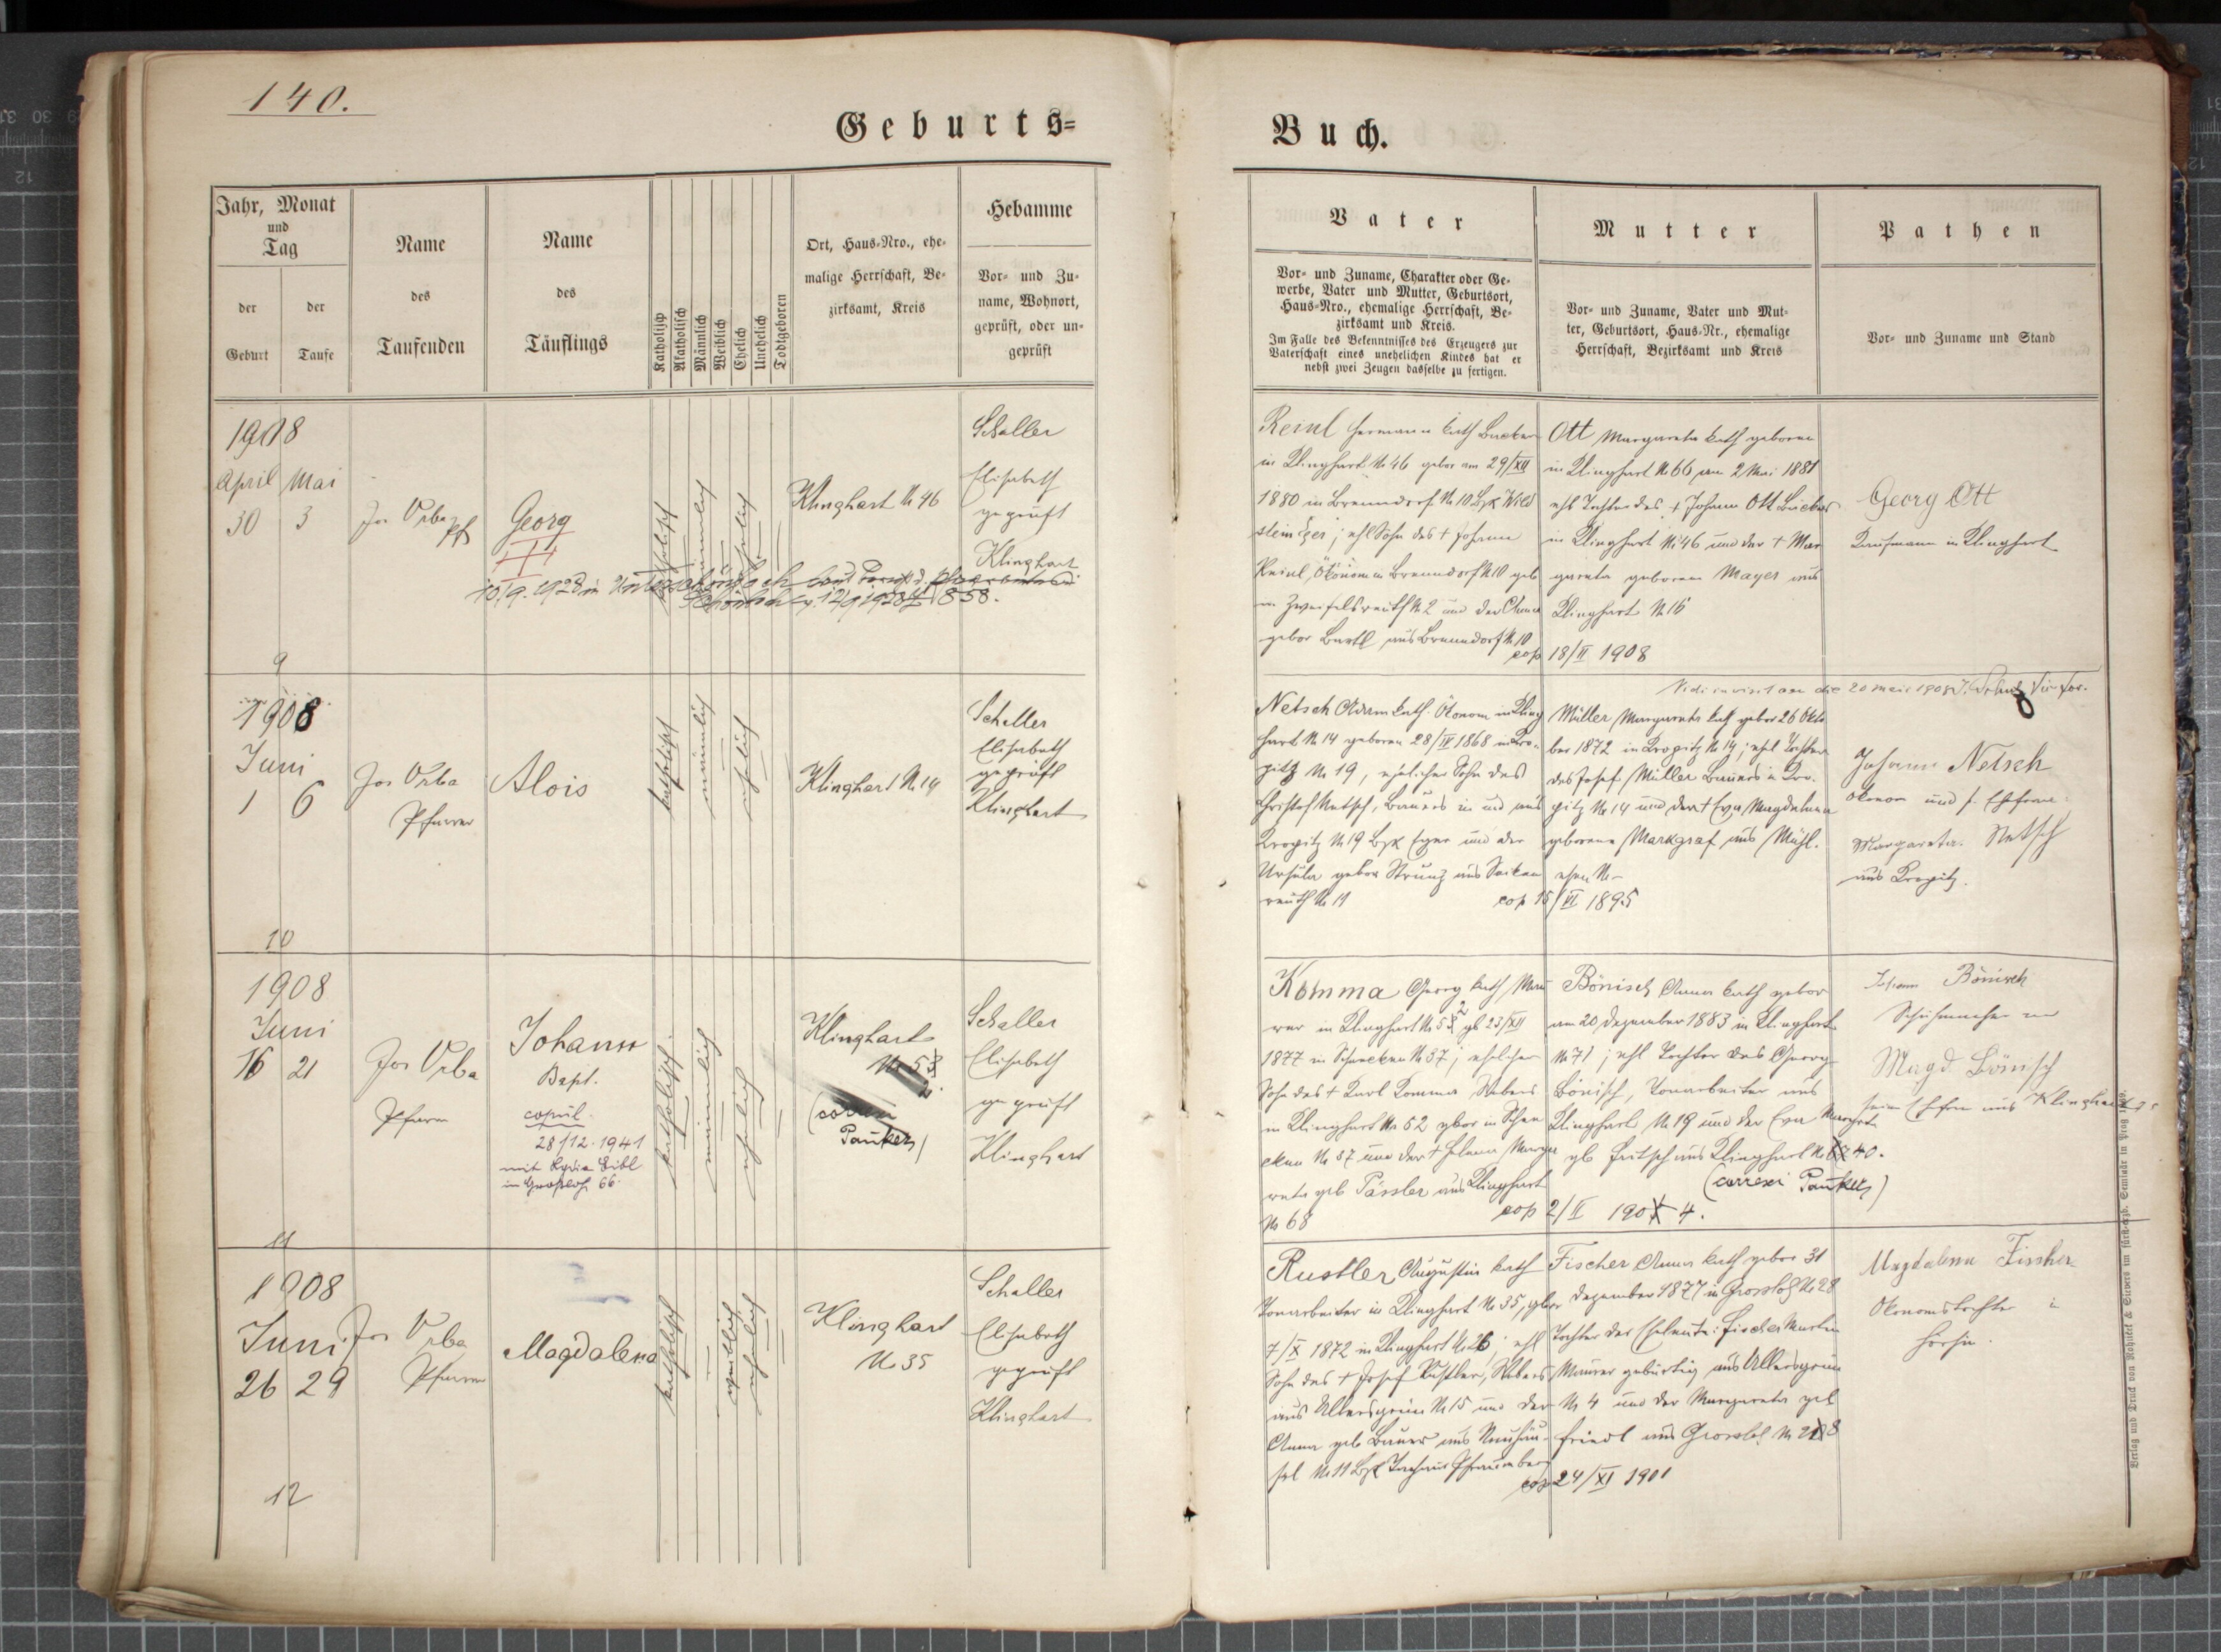 140.
Geburts=
Buch.
Jahr, Monat
und
Tag
der
Geburt
der
Taufe
Name
des
Taufenden
Name
des
Täuflings
Katholisch
Akatholisch
Männlich
Weiblich
Ehelich
Unehelich
Todtgeboren
Ort, Haus-Nro., ehe-
malige Herrschaft, Be-
zirksamt, Kreis
Hebamme
Vor- und Zu-
name, Wohnort,
geprüft, oder un-
geprüft
Vater
Vor- und Zuname, Charakter oder Ge-
werbe, Vater und Mutter, Geburtsort,
Haus-Nro., ehemalige Herrschaft, Be-
zirksamt und Kreis.
Im Falle des Bekenntnisses des Erzeugers zur
Vaterschaft eines unehelichen Kindes hat er
nebst zwei Zeugen dasselbe zu fertigen.
Mutter
Vor- und Zuname, Vater und Mut-
ter, Geburtsort, Haus-Nr., ehemalige
Herrschaft, Bezirksamt und Kreis
Pathen
Vor- und Zuname und Stand
1908
April Mai
30 3
9
Jos Vrba
Georg
katholisch
männlich
ehelich
Klinghart N 46
Schaller
Elisabeth
geprüft
Klinghart
Reinl Hermann kath
in Klinghart No 46 gebor am 29/XII
1880 in Brenndorf No 10 Bzk Wild
stein Eger; ehl Sohn des + Johann
Reinl, Ökonom in Brenndorf N 10 geb
in Zweifelsreuth N 2 und der Anna
gebor Bartl aus Brenndorf N 10
cop 18/II 1908
Ott Margareta kath geboren
in Klinghart N 66 am 2 Mai 1881
ehl Tochter des + Johann Ott
in Klinghart N 46 und der + Mar
gareta geboren Mayer aus
Klinghart N 16
Georg Ott
Kaufmann in Klinghart
1908
Juni
1 6
10
Jos Vrba
Pfarrer
Alois
katholisch
männlich
ehelich
Klinghart N 14
Schaller
Elisabeth
geprüft
Klinghart
Netsch Adam kath. Ökonom in Kling
hart N 14 geboren 28/IV 1868 in Kro-
pitz No 19, ehelicher Sohn des
Christof Netsch, Bauers in und aus
Kropitz N 19 Bzk Eger und der
Ursula gebor Strunz aus
reuth N 11
cop 15/VI 1895
Müller Margareta kath gebor 26 Okto
ber 1872 in Kropitz N 14; ehl Tochter
des Josef Müller Bauers in Kro-
pitz No 14 und der + Eva Magdalena
geborene Markgraf aus Mühl-
Johann Netsch
Ökonom und s. Ehefrau
Margareta Netsch
aus Kropitz.
1908
Juni
16 21
11
Jos Vrba
Pfarrer
Johann
Bapt.
copul.
28/12. 1941
in Grosloh 66.
katholisch
männlich
ehelich
Klinghart
Schaller
Elisabeth
geprüft
Klinghart
Komma Georg kath Mau
rer in Klinghart gb 23/XII
1877 in Schnecken N 37; ehelicher
Sohn des + Karl Komma Webers
in Klinghart No 52 gebor in Schne
cken No 37 und der + Helena Marga
reta geb Pässler aus Klinghart
No 68
cop 2/II 1904.
Bönisch Anna kath gebor
am 20 Dezember 1883 in Klinghart
No 71; ehl Tochter des Georg
Bönisch, Tonarbeiter aus
Klinghart N 19 und der Eva Margret
gb Fritsch aus Klinghart No 40.
(correxi
Johann Bönisch
Schuhmacher
Magd. Bönisch
seine Ehefrau aus Klinghart
1908
Juni
26 29
12
Jos Vrba
Pfarrer
Magdalena
katholisch
weiblich
ehelich
Klinghart
No 35
Schaller
Elisabeth
geprüft
Klinghart
Rustler Augustin kath
Tonarbeiter in Klinghart No 35, gebor
7/X 1872 in Klinghart N 26; ehl
Sohn des + Josef Rustler, Webers
aus Albersgrün N 15 und der
Anna geb Bauer aus Neuhäu-
sel No 11 Bzk Tachau Pfraumberg
cop 24/XI 1901
Fischer Anna kath gebor 31
Dezember 1877 in Grosloh No 28
Tochter der Eheleute: Fischer Martin
Maurer gebürtig aus Albersgrün
N 4 und der Margareta geb
Friedl aus Grosloh
Magdalena Fischer
Ökonomstochter in